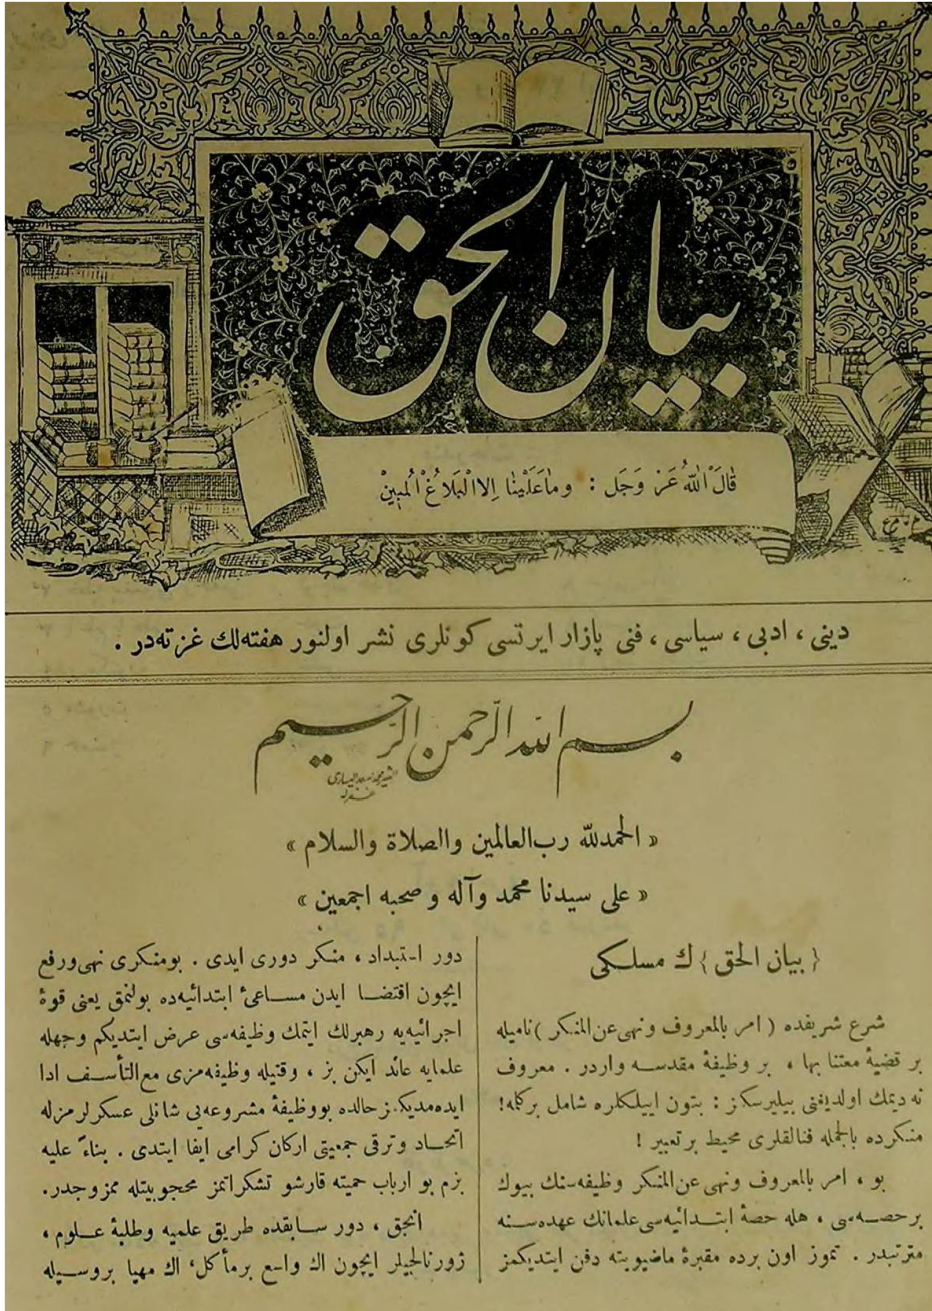 بيان الحق
قَالَ اللّٰهُ عَزَّ وَجَل : وَمَاعَلَيْنَا اِلاالْبَلاَغُ الْمُبِينْ
دينى ، ادبى ، سياسى ، فنى پازار ايرتسى كونلرى نشر اولنور هفته‌لك غزته‌در .
بسم الله الرحمن الرحيم
« الحمدلله رب‌العالمين والصلاة والسلام »
« على سيدنا محمد وآله و صحبه اجمعين »
{ بيان الحق } ك مسلكى
شرع شريفده ( امر بالمعروف ونهى عن المنكر ) ناميله
بر قضيۀ معتنا بها ، بر وظيفۀ مقدسه واردر . معروف
نه ديمك اولديغنى بيليرسكز : بتون اييلكلره شامل بركله!
منكرده بالجمله فنالقلرى محيط بر تعبير !
بو ، امر بالمعروف ونهى عن المنكر وظيفه‌سنك بيوك
بر حصه‌سى ، هله حصۀ ابتدائيه‌سى علمانك عهده‌سنه
مترتبدر . تموز اون برده مقبرۀ ماضيويته دفن ايتديكمز
دور استبداد ، منكر دورى ايدى . بومنكرى نهى ورفع
ايچون اقتضا ايدن مساعئ ابتدائيه‌ده بولنمق يعنى قوۀ
اجرائيه‌يه رهبرلك ايتمك وظيفه‌سى عرض ايتديكم وجهله
علمايه عائد ايكن بز ، وقتيله وظيفه‌مزى مع التأسف ادا
ايده‌مديكمز حالده بووظيفۀ مشروعه‌يى شانلى عسكرلرمزله
اتحاد وترقى جمعيتى اركان كرامى ايفا ايتدى . بناءً عليه
بزم بو ارباب حميته قارشو تشكراتمز محجوبيتله ممزوجدر.
انجق ، دور سابقده طريق علميه وطلبۀ علوم ،
ژورنالجيلر ايچون اك واسع بر مأكل، اك مهيا بروسيله